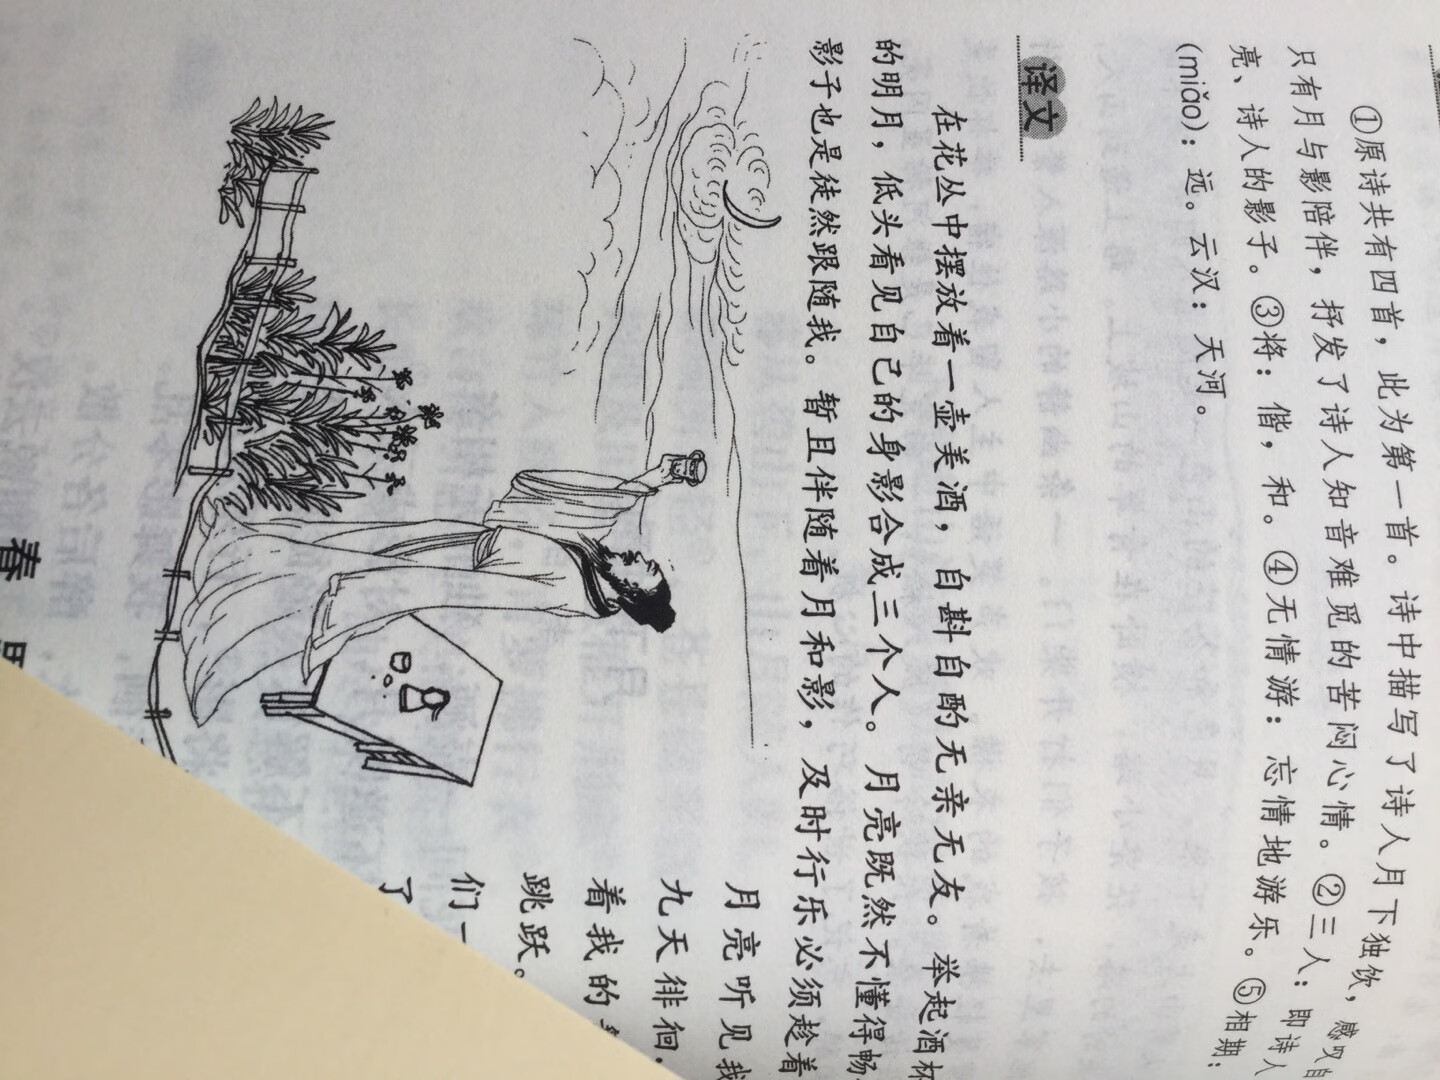 ①原诗共有四首，此为第一首。诗中描写了诗人月下独饮，感叹自
只有月与影陪伴，抒发了诗人知音难觅的苦闷心情。②三人：即诗人
亮、诗人的影子。③将：偕，和。④无情游：忘情地游乐。⑤相期：
(miǎo)：远。云汉：天河。
译文
在花丛中摆放着一壶美酒，自斟自酌无亲无友。举起酒杯
的明月，低头看见自己的身影合成三个人。月亮既然不懂得畅
影子也是徒然跟随我。暂且伴随着月和影，及时行乐必须趁着
月亮听见我
九天徘徊，
着我的
跳跃。
们一
了
春